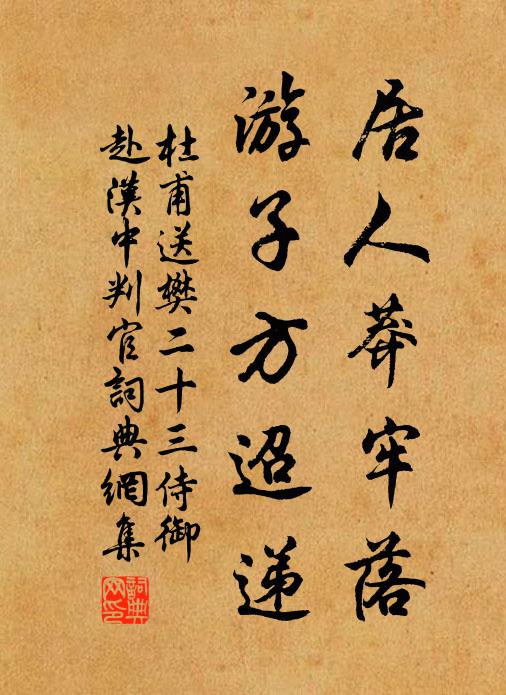 居人莽牢落
游子方迢递
杜甫送樊二十三侍御
赴漢中判官詞典網集
詞典網印